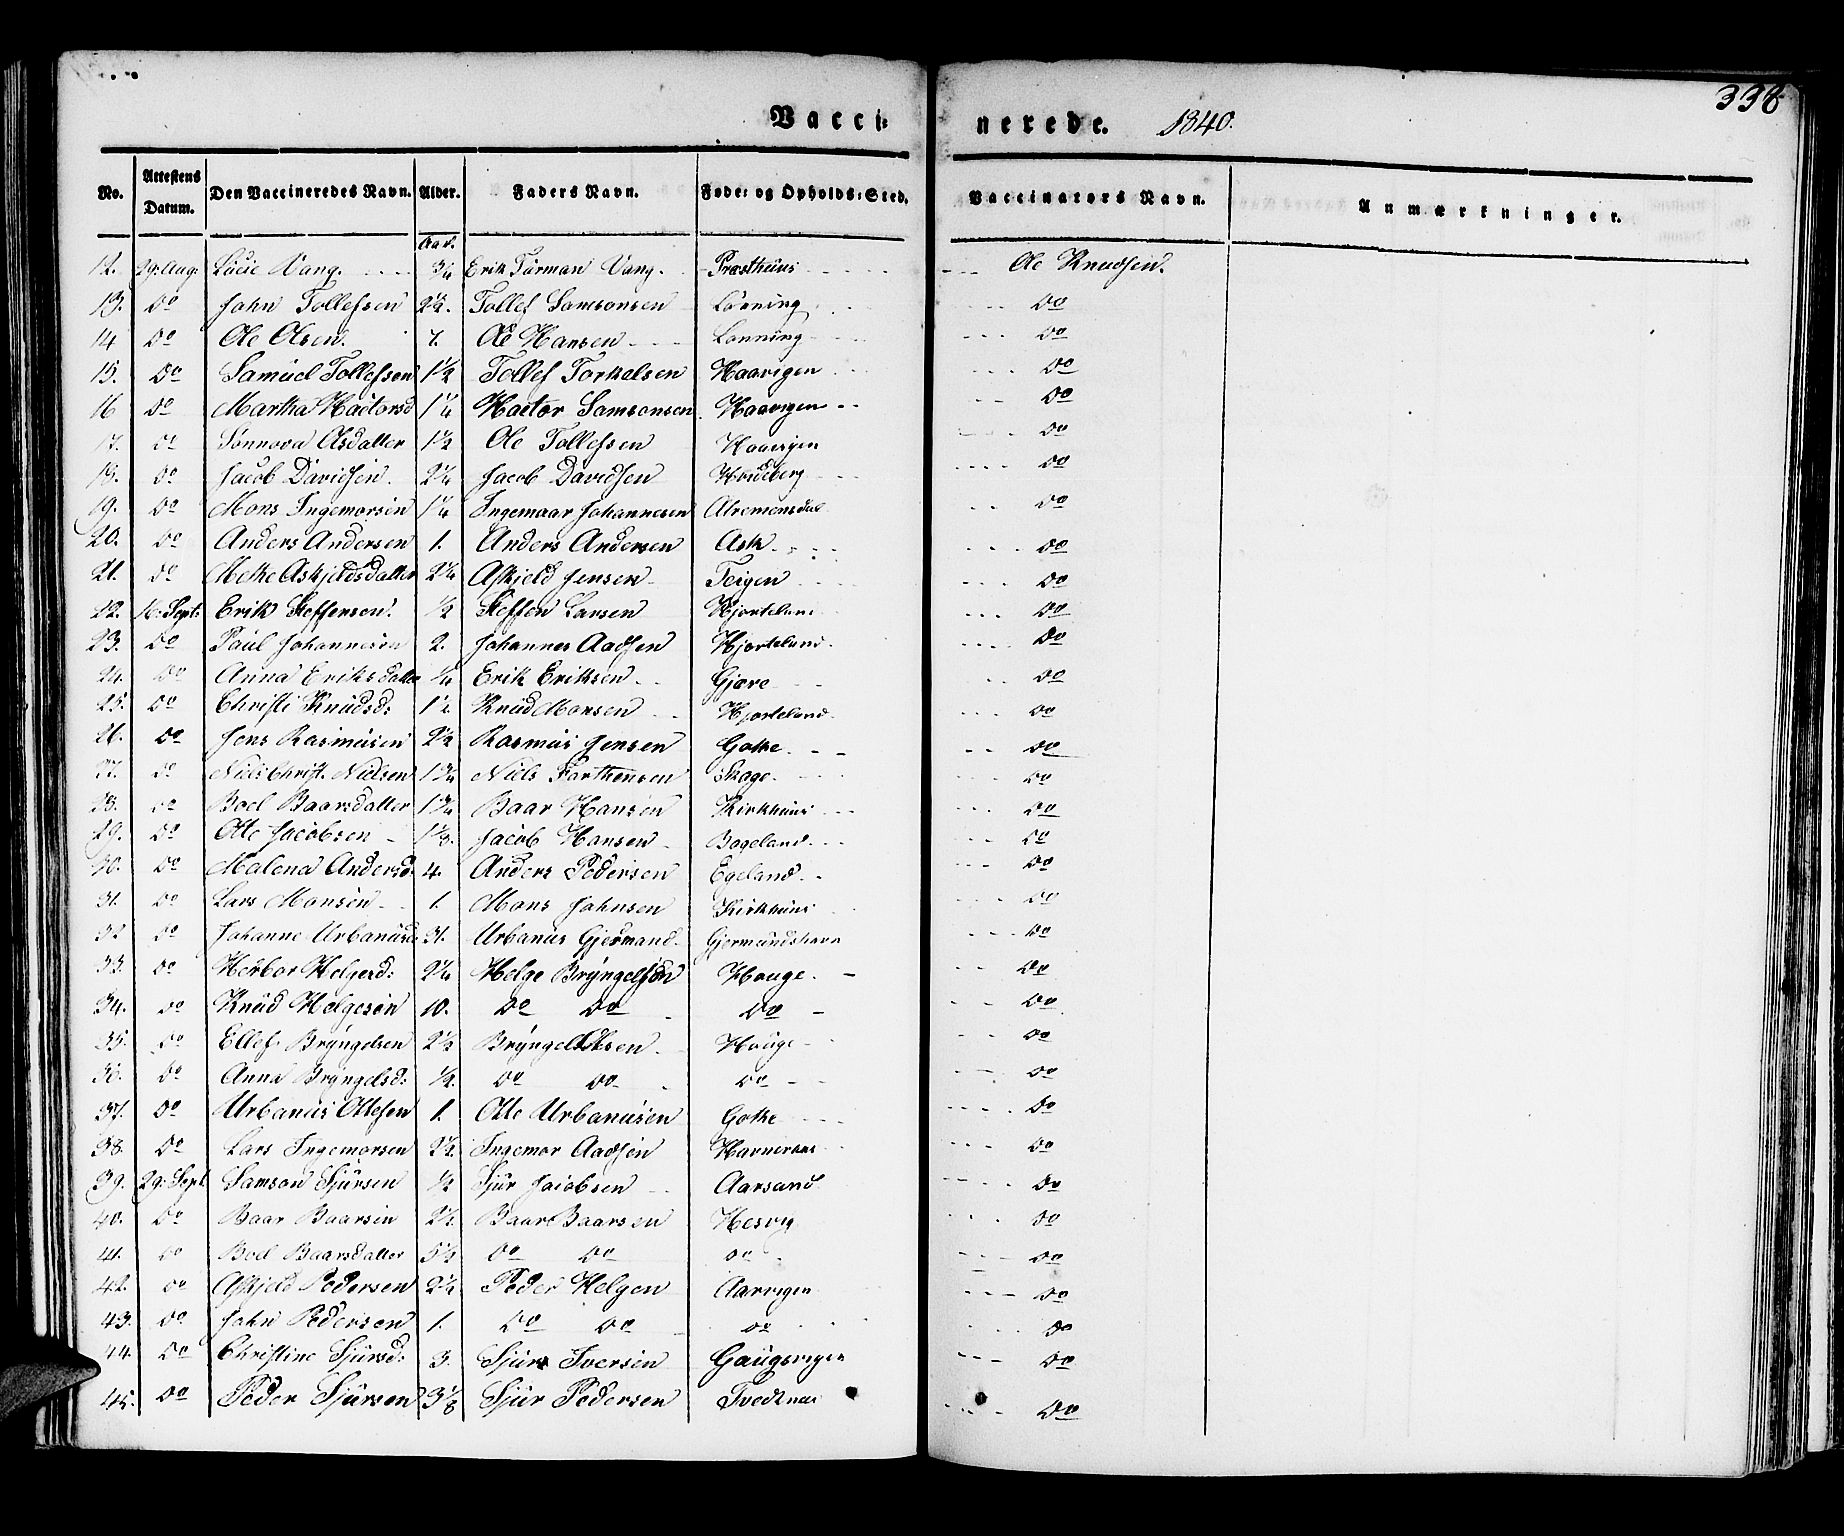 338
Vacci: nerede. 1840.
No. Attestens Datum. Den Vaccineredes Navn. Alder. Faders Navn. Føde: og Opholds: Sted. Vaccinators Navn. Anmærkninger.
Aar.
12. 29: Aug: Lucie Vang. 3/4 Erik Turman Vang. Præsthuus Ole Knudsen.
13. Do John Tollefsen 2 1/2. Tollef Samsonsen Lönning Do
14 Do Ole Olsen. 7. Ole Hansen Lonning Do
15. Do Samuel Tollefsen 1 1/2 Tollef Torkelsen Haavigen Do
16 Do Martha Hactorsd 1 1/4 Hactor Samsonsen Haavigen Do
17. Do Sonnova Olsdatter 1 1/2 Ole Tollefsen Haavigen Do
18. Do Jacob Davidsen. 2 1/4 Jacob Davidsen Do
19. Do Mons Ingemorsen 1 1/4 Ingemaar Johannesen Do
20. Do Anders Andersen 1. Anders Andersen Ask Do
21. Do Methe Askjeldsdatter 2 1/4 Askjeld Jensen Teigen Do
22. 16: Sept: Erik Steffensen. 1/2 Steffen Larsen Hjorteland Do
23. Do Paul Johannesen 2. Johannes Aadsen Hjorteland Do
24. Do Anna Eriksdatter 1/4 Erik Eriksen Gjære Do
25. Do Christi Knudsd: Knud Monsen Hjorteland Do
26. Do Jens Rasmusen 2 1/2 Rasmus Jensen Gothe Do
27. Do Niels Christ. Nielsen 1 3/4 Niels Skage Do
28. Do Boel Baarsdatter 1 3/4 Baar Hansen Kirkhuus Do
29. Do Otte Jacobsen 1 1/3. Jacob Hansen Do
30. Do Malena Andersd: 4. Anders Pedersen Egeland Do
31. Do Lars Monsen 1. Mons Johnsen Kirkhuus Do
32 Do Johanne Urbanusd: 31. Urbanus Gjermand. Gjermundshavn Do
33. Do Herbor Helgesd: 2 1/4 Helge Bryngelsøn Houge Do
34. Do Knud Helgesøn 10. Do Do Do Do
35. Do Ellef Bryngelsen 2 1/2 Bryngel Olsen Houge Do
36. Do Anna Bryngelsd: 1/2. Do Do Do Do
37. Do Urbanus Ottesen 1. Otte Urbanusen Gothe Do
38. Do Lars Ingemorsen 2 1/2. Ingemor Aadsen Do
39. 29: Sept. Samson Sjursen 1/2 Sjur Jacobsen Aarsand Do
40. Do Baar Baarsen Baar Baarsen Hesvig Do
41. Do Boel Baarsdatter 5 1/2 Do Do Do Do
42. Do Askjeld Pedersen 2 1/4 Peder Helgen Aarvigen Do
43. Do John Pedersen 1. Do Do Do Do
44. Do Christine Sjursd: 3. Sjur Iversen Gaugsvigen Do
45. Do Peder Sjursen 3 1/8 Sjur Pedersen Tvedtnæs Do